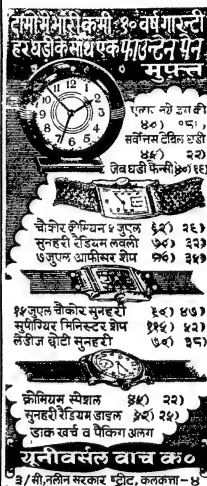 दामों में भारी कमी १० वर्ष गारन्टी
हर घड़ी के साथ एक फाउन्टेन पेन
मुफ्त
४०)
टेबिल घड़ी
४४) २२)
जेब घड़ी फेन्सी
चौकोर क्रोमियम ५ जुएल ६२) २६)
सुनहरी रेडियम लवली ७०) ३२)
७ जुएल आफीसर शेप ७०) ३५)
१५ जुएल चौकोर सुनहरी ६०) ४७)
सुपीरियर मिनिस्टर शेप ११५) ५२)
लेडीज छोटी सुनहरी ७०) ३८)
क्रोमियम स्पेशल ४५) २२)
सुनहरी रेडियम डाइल ५२) २५)
डाक खर्च व पैकिंग अलग
यूनीवर्सल वाच कं०
३/सी,नलीन सरकार स्ट्रीट, कलकत्ता-४